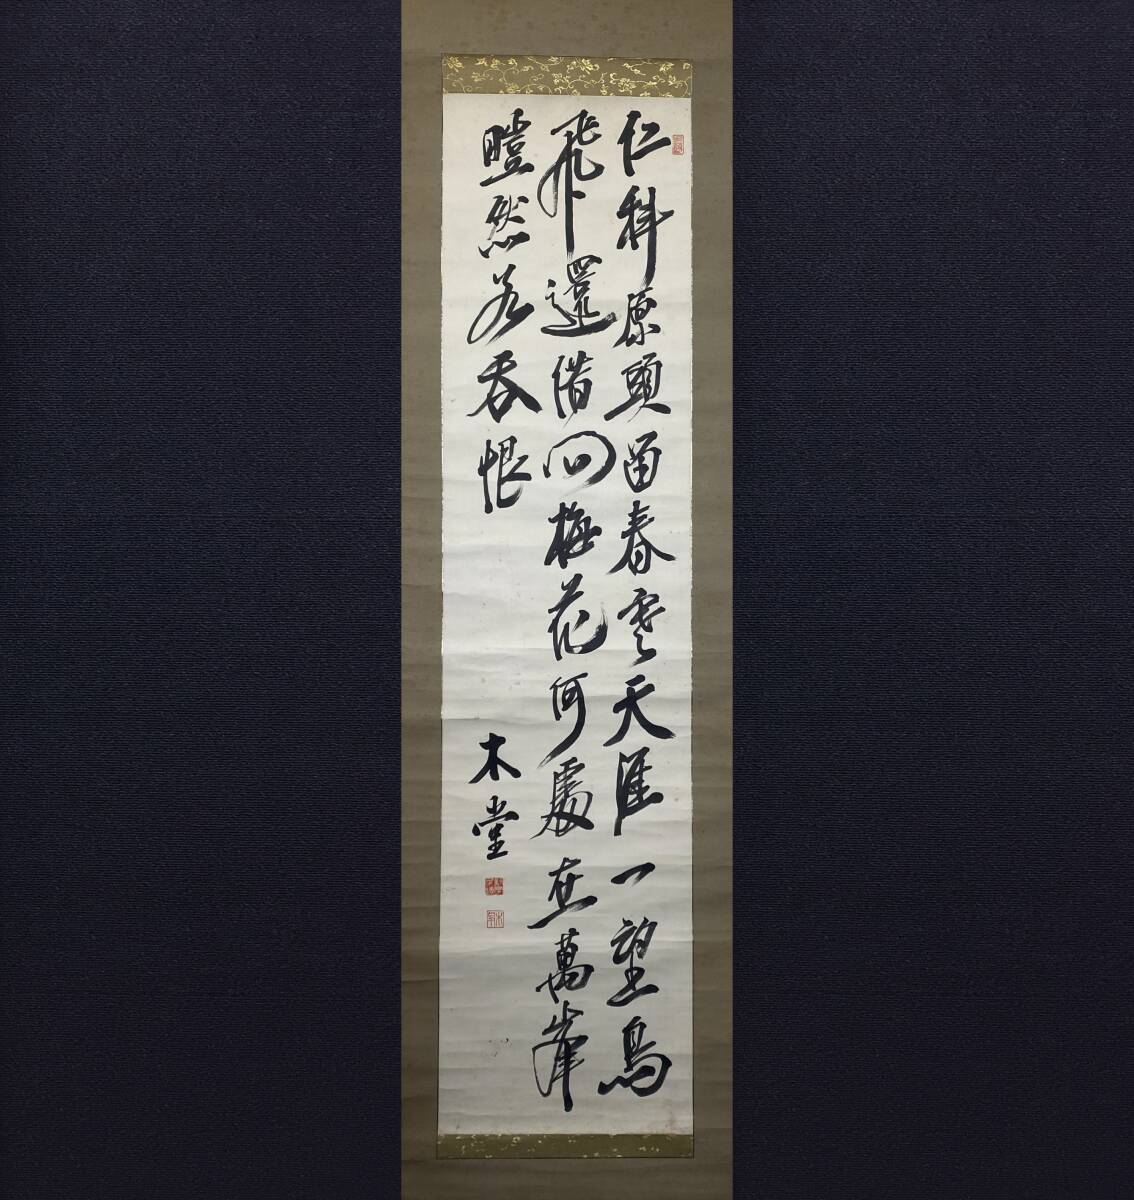 仁科原頭留春雲天涯一望鳥
飛還借問梅花何處在萬峯
曀然若呑恨
木堂